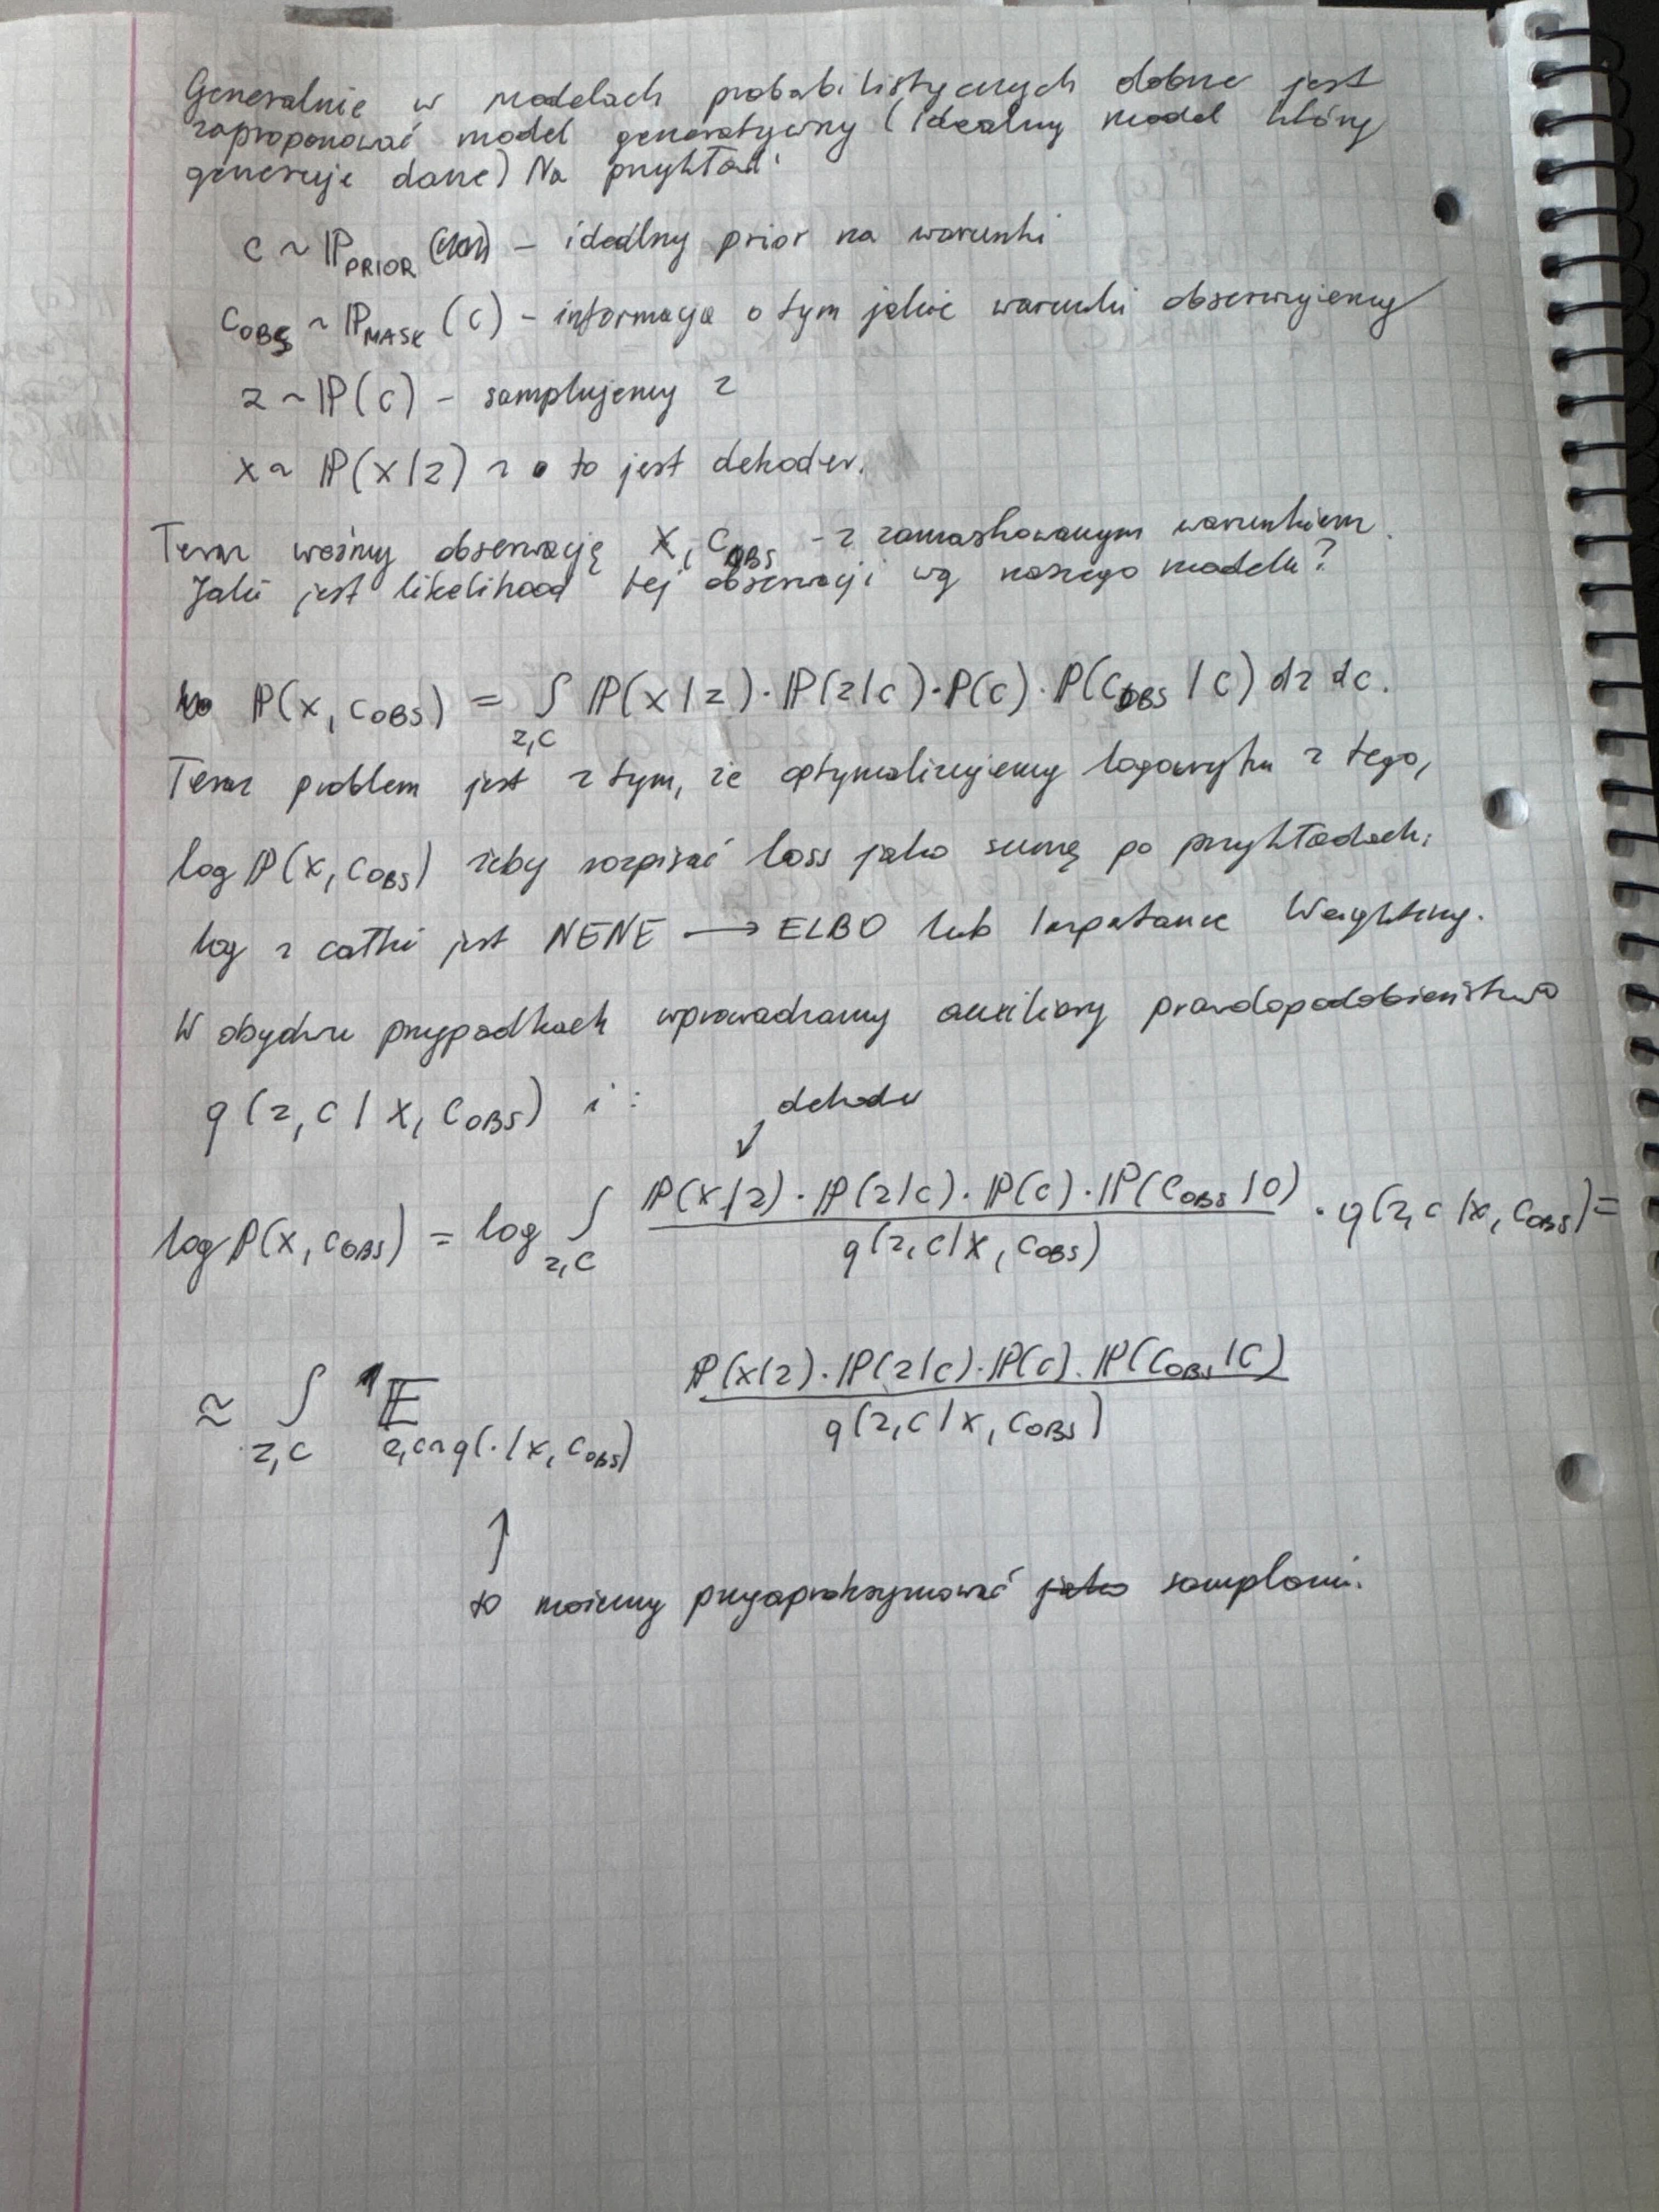 Generalnie w modelach probabilistycznych dobrze jest
zaproponować model generatywny (idealny model który
generuje dane) Na przykład:
c ~ ℙ_PRIOR - idealny prior na warunki
c_OBS ~ ℙ_MASK (c) - informacja o tym jakie warunki obserwujemy
z ~ ℙ(c) - samplujemy z
x ~ ℙ(x|z) ~ to jest dekoder.
Teraz weźmy obserwację x, c_OBS - z zamaskowanym warunkiem.
Jaki jest likelihood tej obserwacji wg naszego modelu?
ℙ(x, c_OBS) = ∫_z,c ℙ(x|z)·ℙ(z|c)·P(c)·P(c_OBS|c) dz dc.
Teraz problem jest z tym, że optymalizujemy logarytm z tego,
log ℙ(x, c_OBS) żeby rozpisać loss jako sumę po przykładach;
log z całki jest NENE → ELBO lub Importance Weighting.
W obydwu przypadkach wprowadzamy auxiliary prawdopodobieństwo
q(z, c | x, c_OBS) i:
dekoder
↓
log ℙ(x, c_OBS) = log ∫_z,c ℙ(x|z)·ℙ(z|c)·ℙ(c)·ℙ(c_OBS|c) / q(z,c|x, c_OBS) · q(z,c|x, c_OBS) =
≈ ∫_z,c 𝔼_z,c~q(·|x, c_OBS) ℙ(x|z)·ℙ(z|c)·ℙ(c)·ℙ(c_OBS|c) / q(z,c|x, c_OBS)
↑
to możemy przyaproksymować jako samplami.